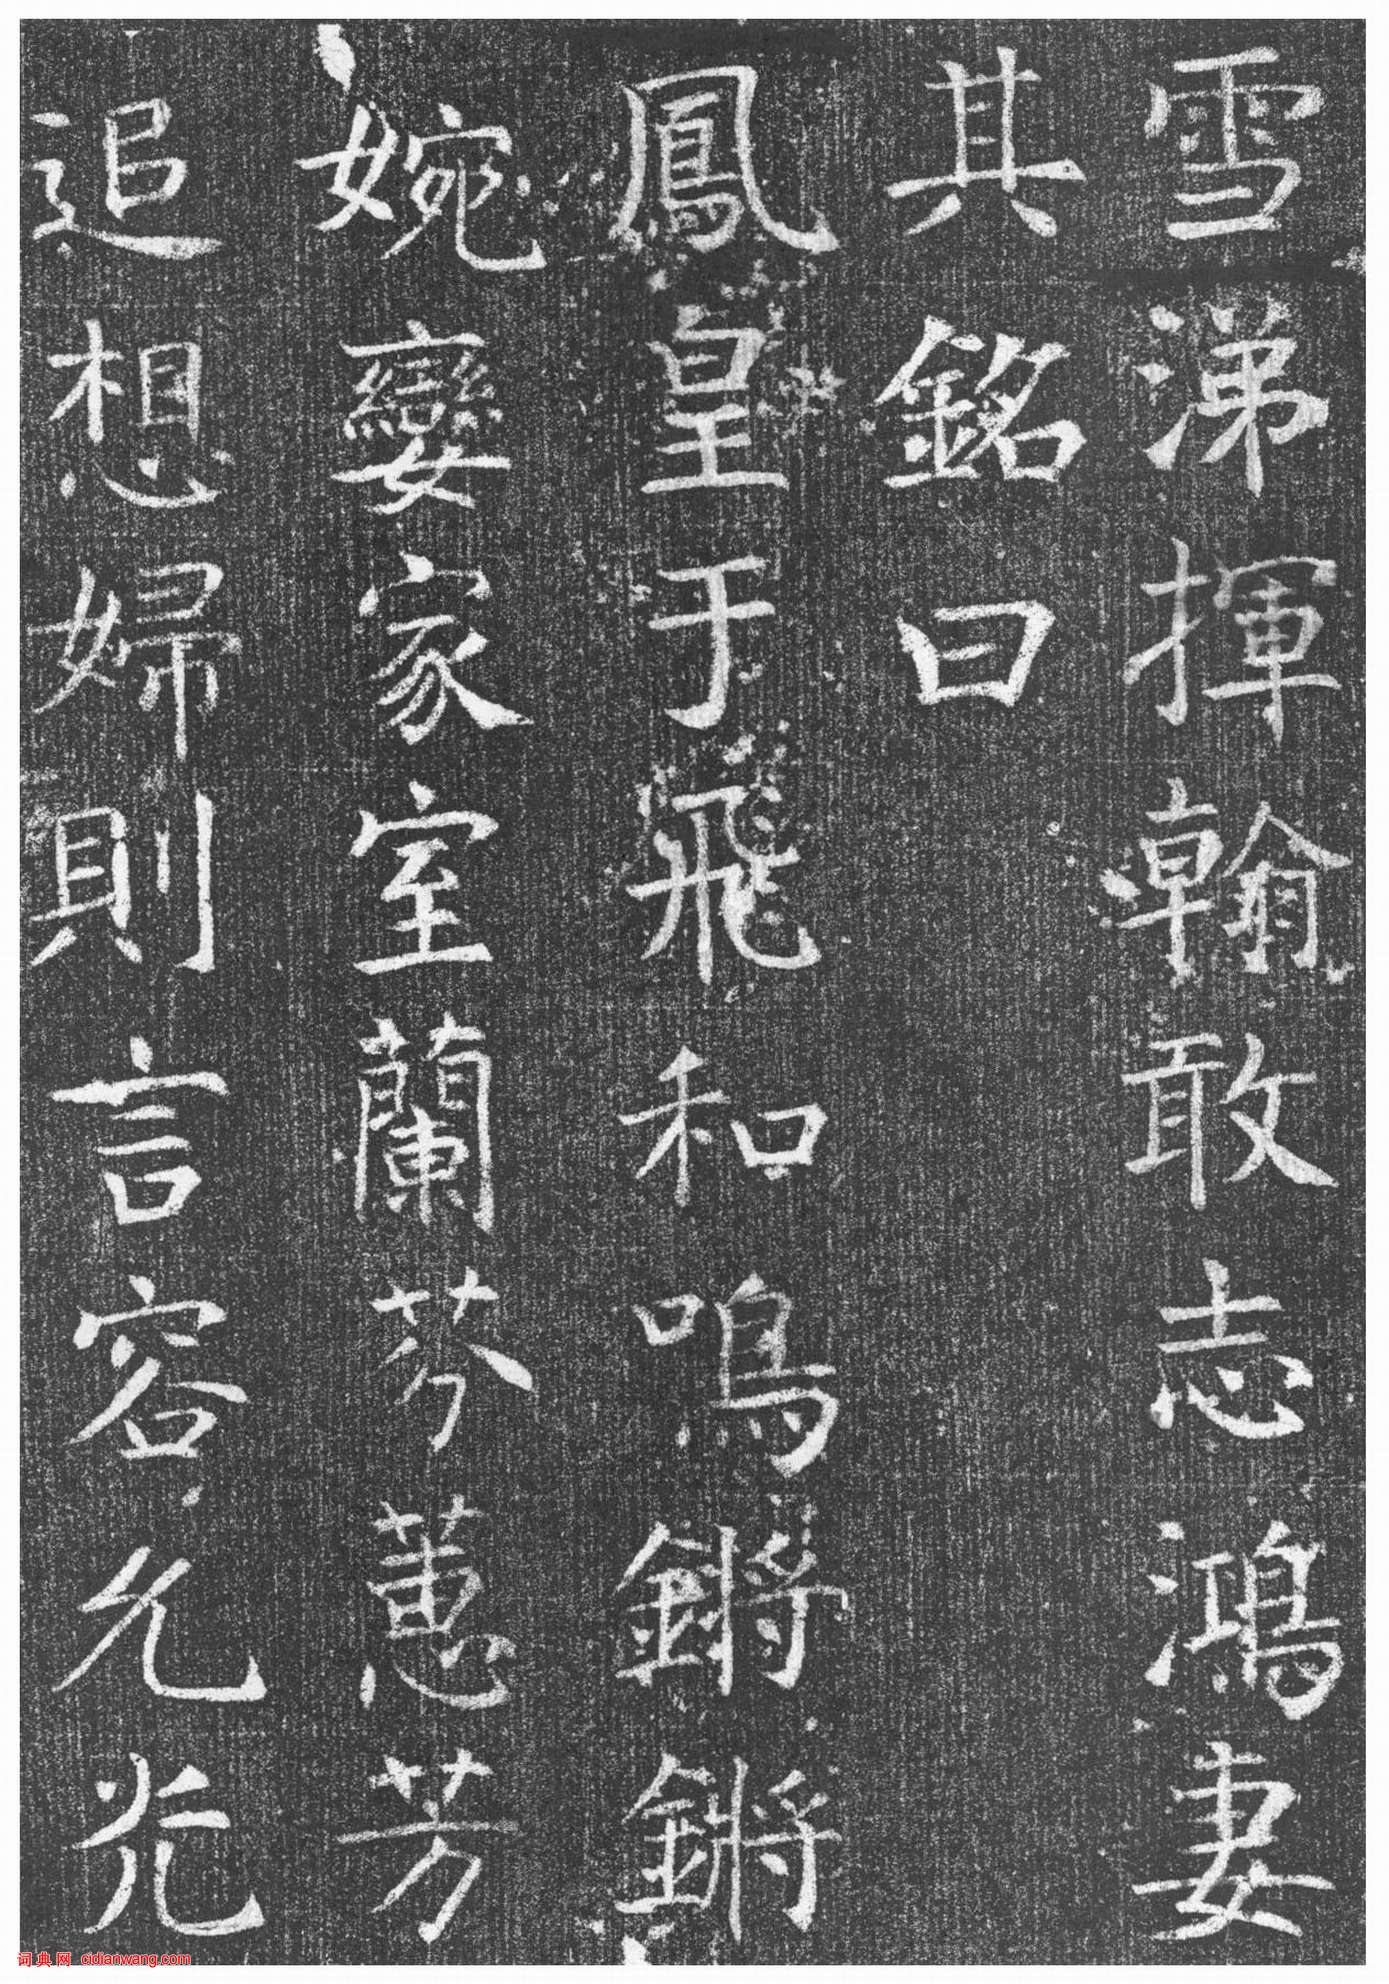 雪涕揮翰敢志鴻妻
其銘曰
鳳皇于飛和鳴鏘鏘
婉孌家室蘭芬蕙芳
追想婦則言容允光
词典网 cidianwang.com